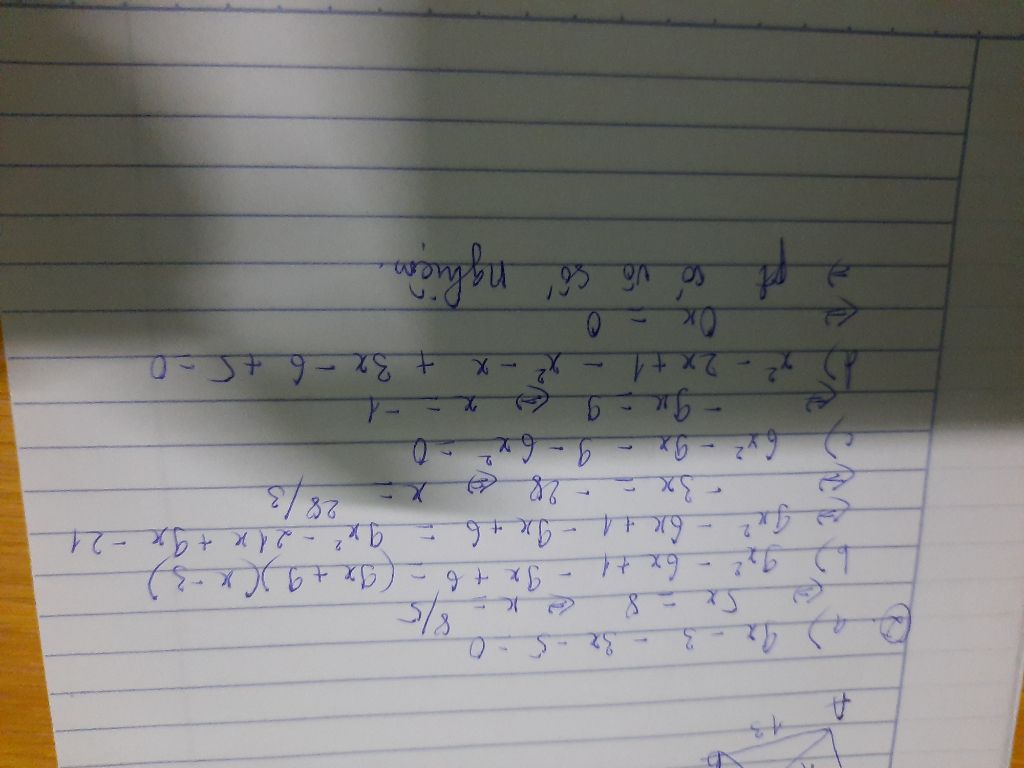 A
13
B
② a) 9x - 3 - 3x - 5 = 0
⇔ 5x = 8 ⇔ x = 8/5
b) 9x² - 6x + 1 - 9x + 6 = (9x + 9)(x - 3)
⇔ 9x² - 6x + 1 - 9x + 6 = 9x² - 21x + 9x - 21
⇔ -3x = -28 ⇔ x = 28/3
c) 6x² - 9x - 9 - 6x² = 0
⇔ -9x = 9 ⇔ x = -1
d) x² - 2x + 1 - x² - x + 3x - 6 + 5 = 0
⇔ 0x = 0
⇒ pt có vô số nghiệm.